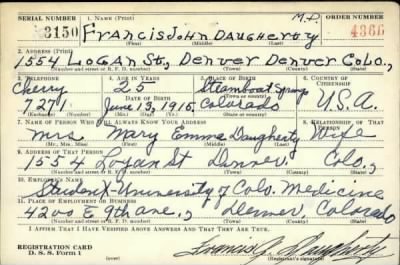 SERIAL NUMBER 1. NAME (Print) ORDER NUMBER
3150 FRANCIS JOHN DAUGHERTY M.D. 4366
(First) (Middle) (Last)
2. ADDRESS (Print)
1554 LOGAN ST., DENVER DENVER COLO.,
(Number and street or R. F. D. number) (Town) (County) (State)
3. TELEPHONE 4. AGE IN YEARS 5. PLACE OF BIRTH 6. COUNTRY OF CITIZENSHIP
Cherry 25 Steamboat Springs
DATE OF BIRTH (Town) (County)
7271 June 13, 1915, Colorado U.S.A.
(Exchange) (Number) (Mo.) (Day) (Yr.) (State or country)
7. NAME OF PERSON WHO WILL ALWAYS KNOW YOUR ADDRESS 8. RELATIONSHIP OF THAT PERSON
Mrs Mary Emma Daugherty Wife
(Mr., Mrs., Miss) (First) (Middle) (Last)
9. ADDRESS OF THAT PERSON
1554 Logan St Denver Colo.,
(Number and street or R. F. D. number) (Town) (County) (State)
10. EMPLOYER'S NAME
Student-University of Colo. Medicine
11. PLACE OF EMPLOYMENT OR BUSINESS
4200 E 9th ave., Denver, Colorado
(Number and street or R. F. D. number) (Town) (County) (State)
I AFFIRM THAT I HAVE VERIFIED ABOVE ANSWERS AND THAT THEY ARE TRUE.
REGISTRATION CARD
D. S. S. Form 1 Francis J. Daugherty
(Registrant's signature)